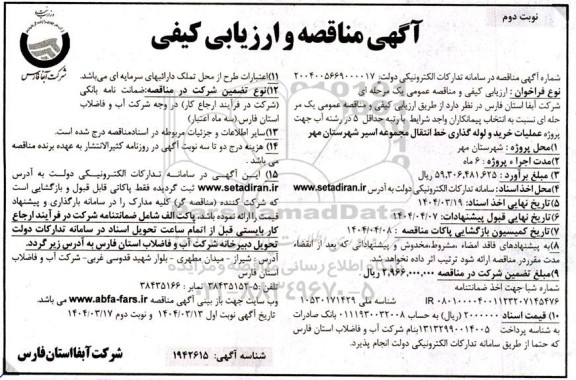 نوبت دوم
آگهی مناقصه و ارزیابی کیفی
شرکت آبفا فارس
شماره آگهی مناقصه در سامانه تدارکات الکترونیکی دولت: ۲۰۰۴۰۰۵۶۶۹۰۰۰۰۱۷
نوع فراخوان: ارزیابی کیفی و مناقصه عمومی یک مرحله ای
شرکت آبفا استان فارس در نظر دارد از طریق ارزیابی کیفی و مناقصه عمومی یک مر
حله ای نسبت به انتخاب پیمانکاران واجد شرایط با رتبه حداقل ۵ در رشته آب جهت
پروژه عملیات خرید و لوله گذاری خط انتقال مجموعه اسیر شهرستان مهر
۱)محل پروژه: شهرستان مهر
۲)مدت اجراء پروژه: ۶ ماه
۳) مبلغ برآورد: ۵۹,۳۰۶,۴۸۱,۶۲۵ ریال
۴)محل اخذ اسناد: سامانه تدارکات الکترونیکی دولت به آدرس www.setadiran.ir
۵)تاریخ نهایی اخذ اسناد: ۱۴۰۴/۰۳/۱۹
۶)تاریخ نهایی قبول پیشنهادات: ۱۴۰۴/۰۴/۰۷
۷)تاریخ کمیسیون بازگشایی پاکات مناقصه: ۱۴۰۴/۰۴/۰۸
۸)به پیشنهادهای فاقد امضاء ،مشروط،مخدوش و پیشنهاداتی که بعد از انقضاء
مدت مقرردر مناقصه ارائه شود ترتیب اثر داده نخواهد شد.
۹)مبلغ تضمین شرکت در مناقصه ۲,۹۶۶,۰۰۰,۰۰۰ ریال
شماره شبا جهت اخذ ضمانتنامه
IR ۰۸۰۱۰۰۰۰۴۰۰۱۱۲۳۲۰۷۱۴۵۴۷۶ شناسه ملی ۱۰۵۳۰۱۷۱۴۲۹
۱۰) قیمت اسناد ۲۰۰۰۰۰۰ (ریال) به حساب ۰۱۱۱۹۳۰۰۳۲۰۰۸ بانک صادرات
به شناسه پرداخت ۱۳۱۳۲۹۹۰۰۱۴۰۰۵ بنام شرکت آب و فاضلاب استان فارس
که حتما از طریق سامانه تدارکات الکترونیکی دولت انجام پذیرد.
۱۱)اعتبارات طرح از محل تملک دارائیهای سرمایه ای می‌باشد.
۱۲)نوع تضمین شرکت در مناقصه:ضمانت نامه بانکی
(شرکت در فرآیند ارجاع کار) در وجه شرکت آب و فاضلاب
استان فارس (سه ماه اعتبار)
۱۳)سایر اطلاعات و جزئیات مربوطه در اسنادمناقصه درج شده است.
۱۴) هزینه درج دو تا سه نوبت آگهی در روزنامه کثیرالانتشار به عهده برنده مناقصه
می باشد .
۱۵) ایـن آگـهی در سامـانـه تـدارکات الـکترونـیـکی دولـت به آدرس
www.setadiran.ir ثبت گردیده فقط پاکاتی قابل قبول و بازگشایی است
که شرکت کننده (مناقصه گر) کلیه مدارک را در سامانه بارگذاری و پیشنهاد
قیمت را ارائه نموده باشد. پاکت الف شامل ضمانتنامه شرکت در فرآیند ارجاع
کار بایستی قبل از اتمام ساعت تحویل اسناد در سامانه تدارکات دولت
تحویل دبیرخانه شرکت آب و فاضلاب استان فارس به آدرس زیر گردد.
آدرس: شیراز - میدان مطهری - بلوار شهید قدوسی غربی- شرکت آب و فاضلاب
استان فارس
تلفن: ۵-۳۸۴۳۵۱۵۳ نمابر: ۳۸۴۳۵۱۶۶
وب سایت جهت باز بینی آگهی مناقصه www.abfa-fars.ir می باشد
تاریخ آگهی نوبت اول ۱۴۰۴/۰۳/۱۳ و نوبت دوم ۱۴۰۴/۰۳/۱۷
شناسه آگهی: ۱۹۴۲۶۱۵
شرکت آبفا استان فارس